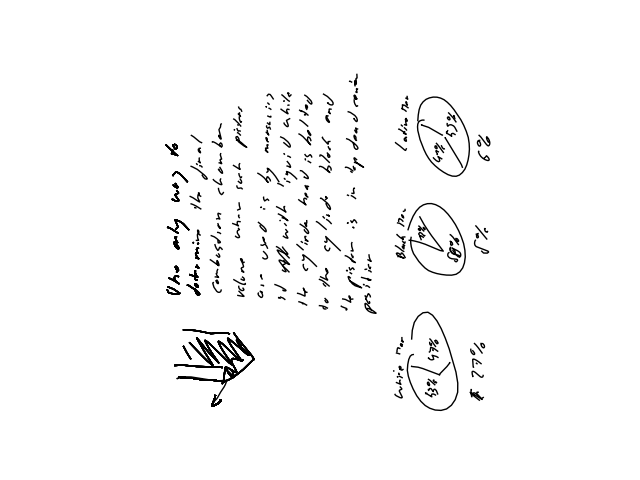 The only way to
determine the final
combustion chamber
volume when such pistons
are used is by measuring
it with liquid while
the cylinder head is bolted
to the cylinder block and
the piston is in top dead
position
White Men
43%
47%
27%
Black Men
5%
Latino Men
6%